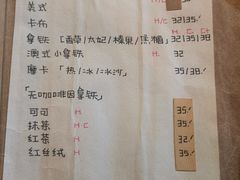 美式 H/C
卡布 H/C 32|35.-
H C C+
拿铁 [香草/太妃/榛果/焦糖] 32|35|38
澳式小拿铁 H. 32
摩卡 「热/冰/冰沙」 35/38.-
「无咖啡因拿铁」
可可 H 35.-
抹茶 H.C 35.-
红茶 H 32.
红丝绒 H 35.-